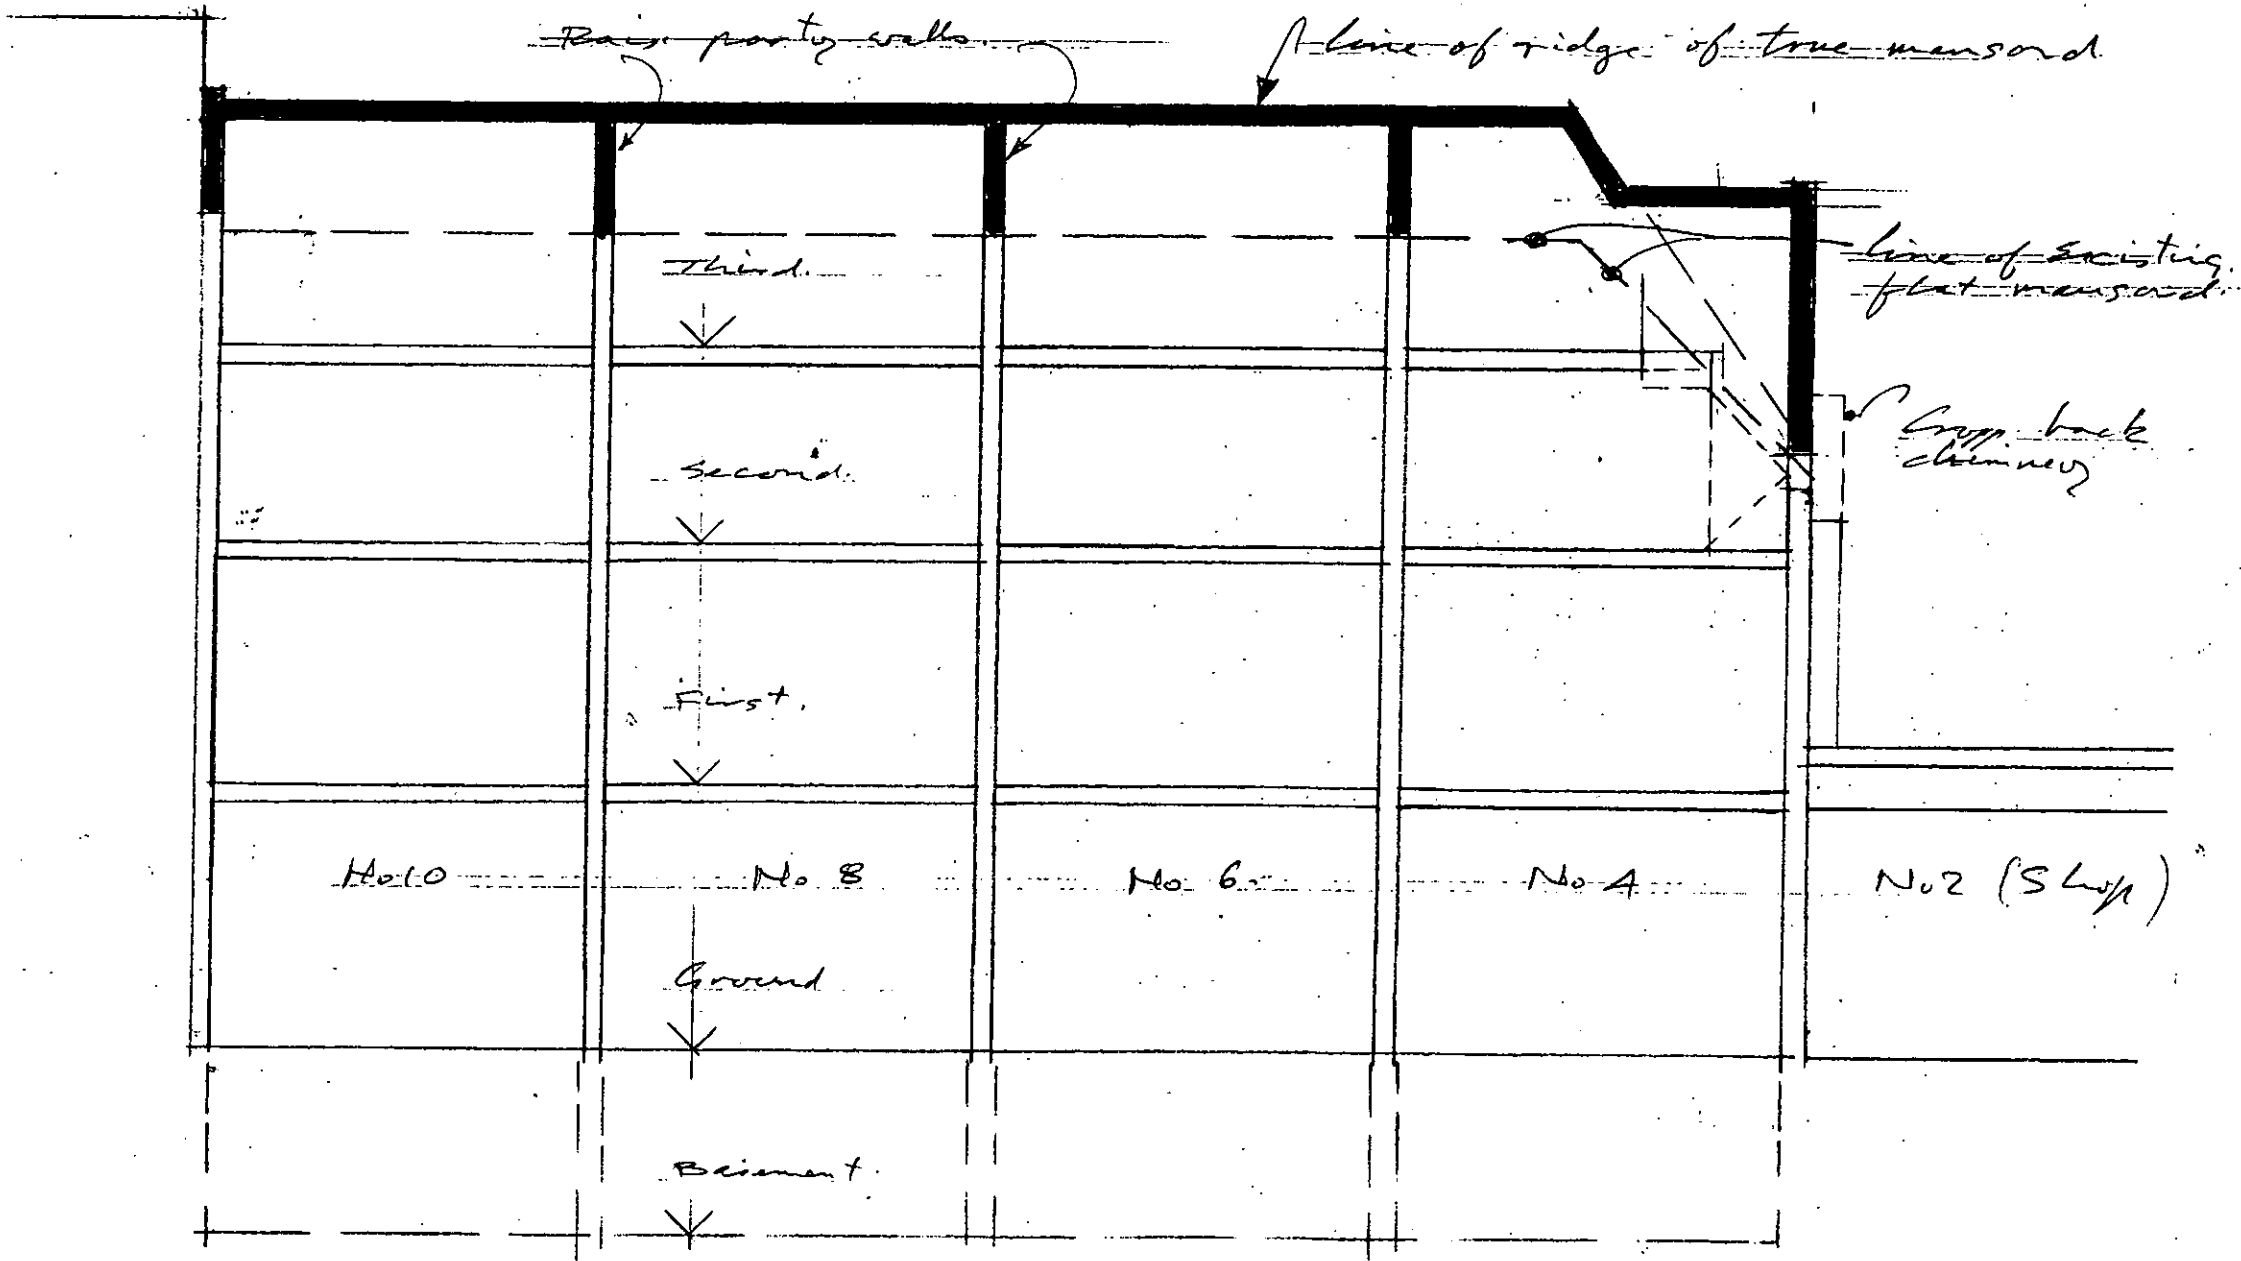 Raise party walls.
line of ridge of true mansard
Third.
line of existing.
flat mansard.
Second.
Crop back
chimney
First.
No 10
No 8
No 6
No 4
No 2 (Shop)
Ground
Basement.